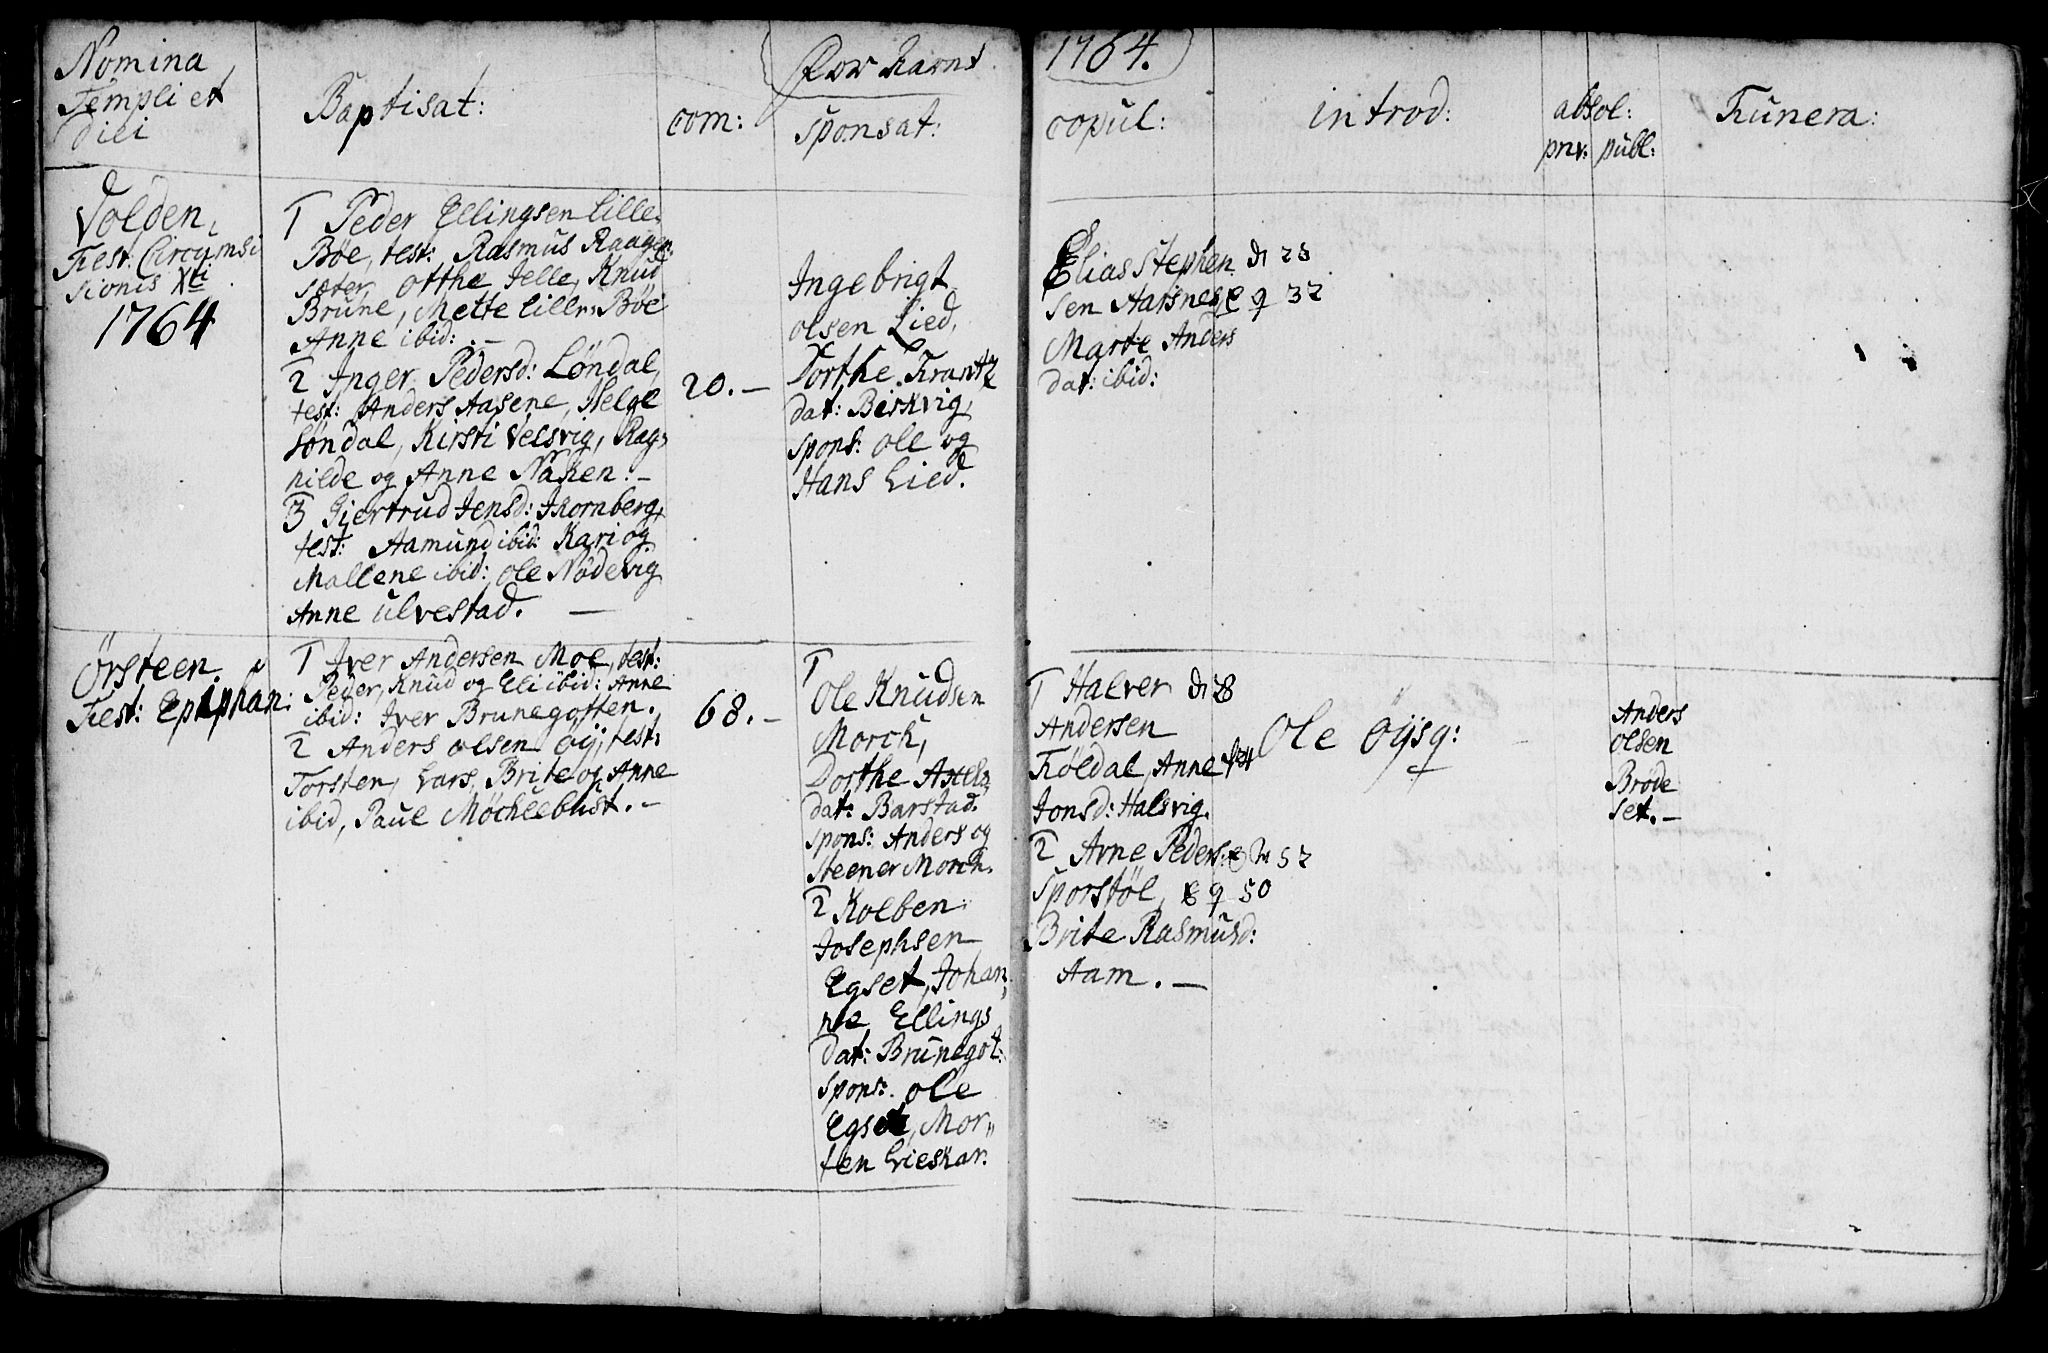 Nomina
Templi et
Diei
Baptisat:
com:
Sponsat:
1764.
copul:
introd:
absol:
priv: publ:
Funera:
Volden,
Fest: Circumsi
sionis Xti
1764
1 Peder Ellingsen Lille,
Bøe, test: Rasmus
sæter, Otthe Jelle, Knud
Brune, Mette Lille Bøe
Anne ibid: . –
2 Inger Pedersd: Løndal,
test: Anders Aasene, Helge
Løndal, Kirsti Velsvig, Rag,
nilde og Anne Naken: –
3 Giertrud Jensd: Thornberg,
test: Aamund ibid: Kari og
Mallene ibid: Ole Nødevig
Anne Ulvestad. —
20. –
Ingebrigt
Olsen Lied,
Dorthe Krantz
dat: Birkvig,
spons: Ole og
Hans Lied.
Elias Stephen 28
sen Aarsnes 37
Marte Anders
dat: ibid:
Örsteen
Fest: Epiphan:
1 Iver Andersen Moe, test:
Peder, Knud og Eli ibid: Anne
ibid: Iver Brunegotten.
2 Anders Olsen Øÿ, test:
Torsten, Lars, Brite og Anne
ibid, Paul Møchlebust. –
68. –
1
Ole Knudsen
Morck,
Dorthe Axels
dat: Barstad.
spons: Anders og
Steener Morch.
2 Kolben
Josephsen
Egset, Johan,
ne Ellings
dat: Brunegot:
spons: Ole
Egset, Mor,,
ten Lieskar.
1 Halver 28
Andersen
Føldal, Anne
Jonsd: Halsvig.
2 Arne Peders 57
Sporstøl, 50
Brite Rasmusd:
Aam. —
Ole Øÿsq:
Anders
Olsen
Brode
set. –